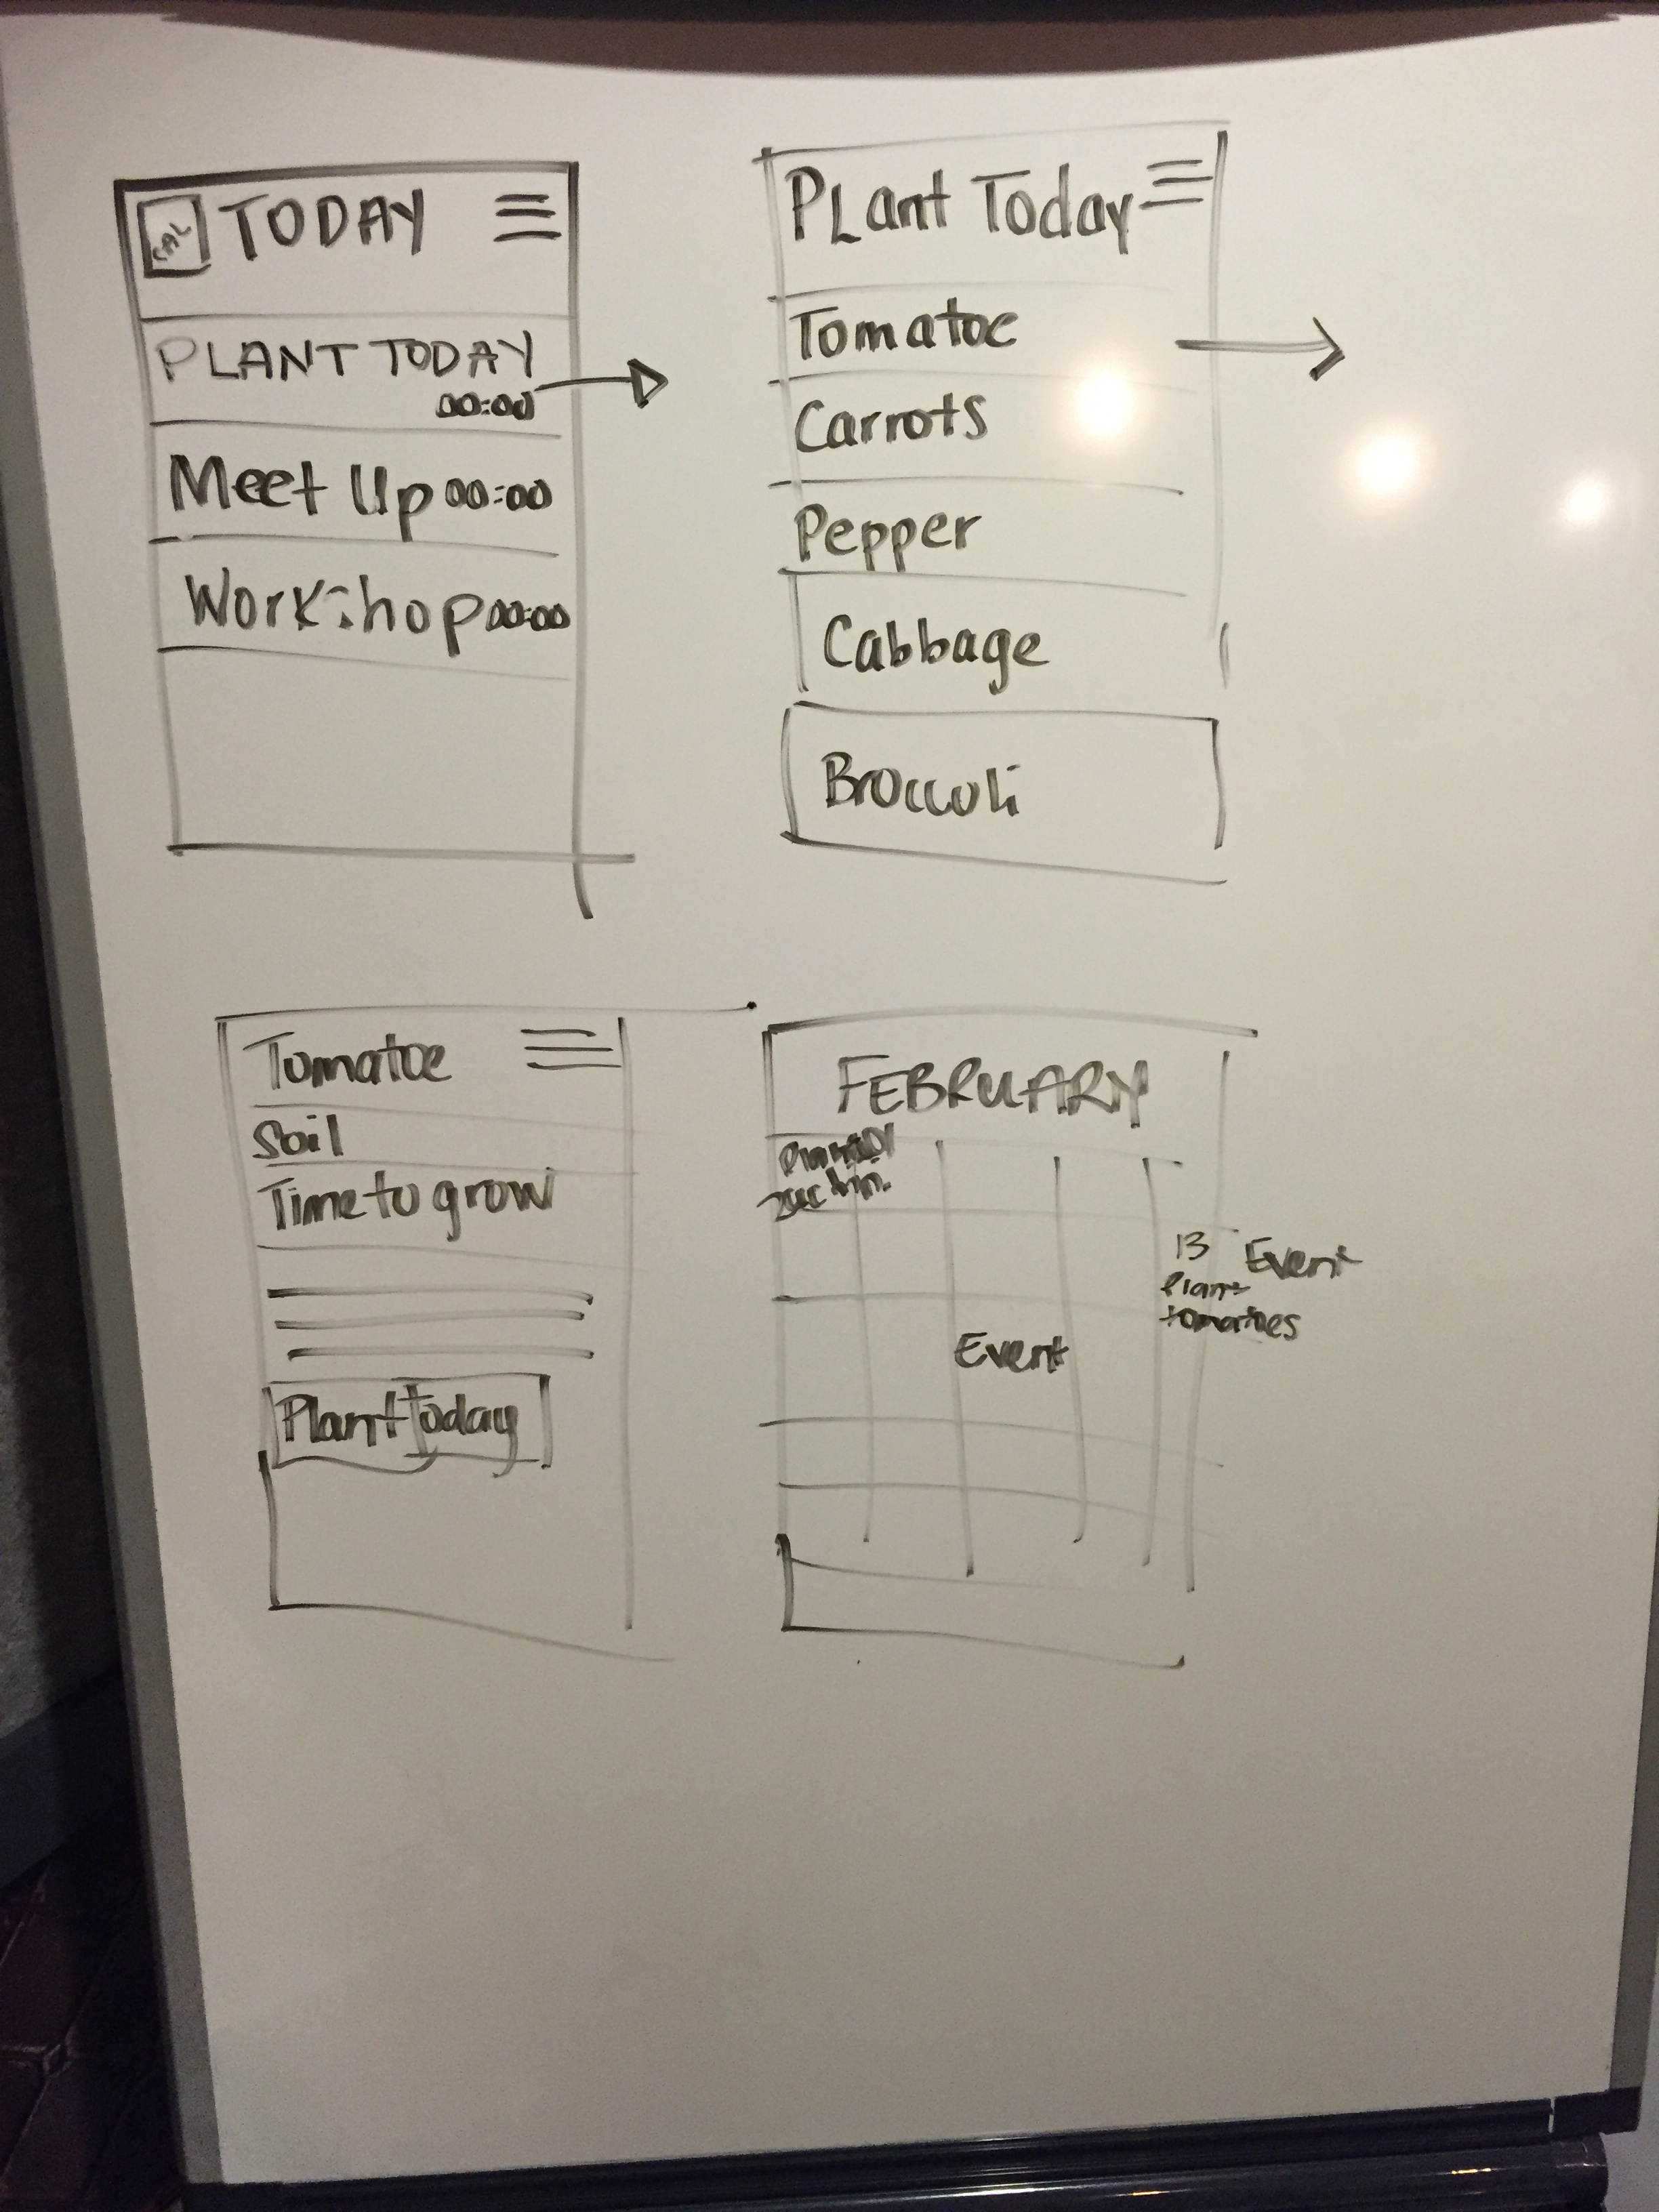 CAL TODAY
PLANT TODAY
00:00
Meet Up 00:00
Workshop 00:00
PLant Today
Tomatoe
Carrots
Pepper
Cabbage
Broccoli
Tomatoe
Soil
Time to grow
Plant today
FEBRUARY
13 Event
Plant
tomatoes
Event